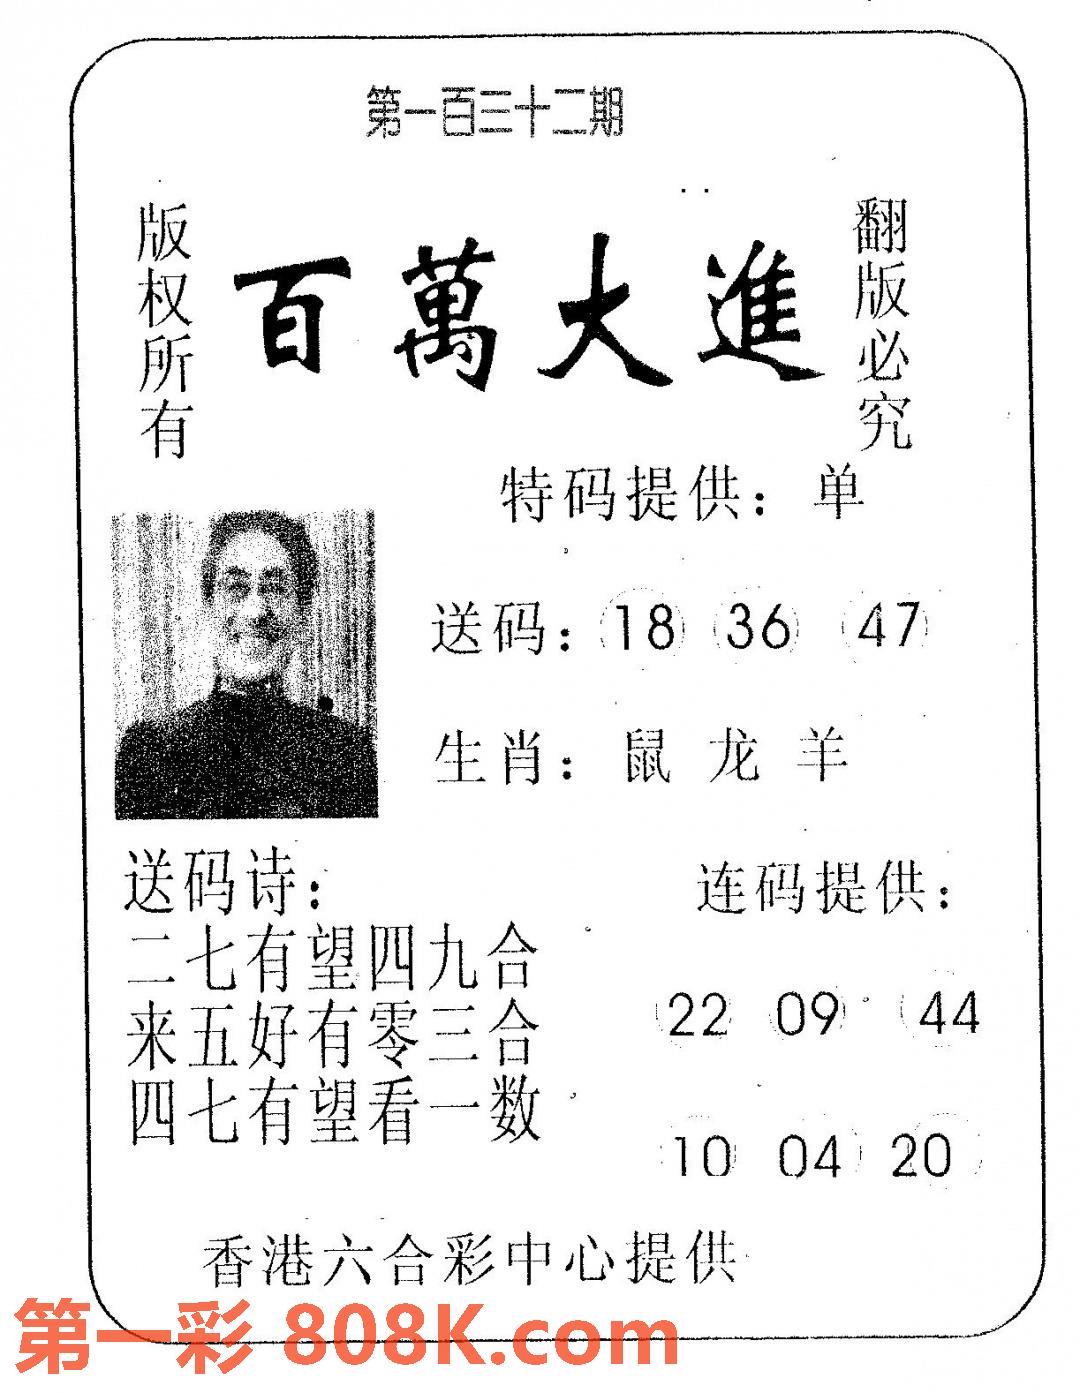 第一百三十二期
版权所有
百萬大進
翻版必究
特码提供：单
送码：18 36 47
生肖：鼠 龙 羊
送码诗：
二七有望四九合
来五好有零三合
四七有望看一数
连码提供：
22 09 44
10 04 20
香港六合彩中心提供
第一彩 808K.com